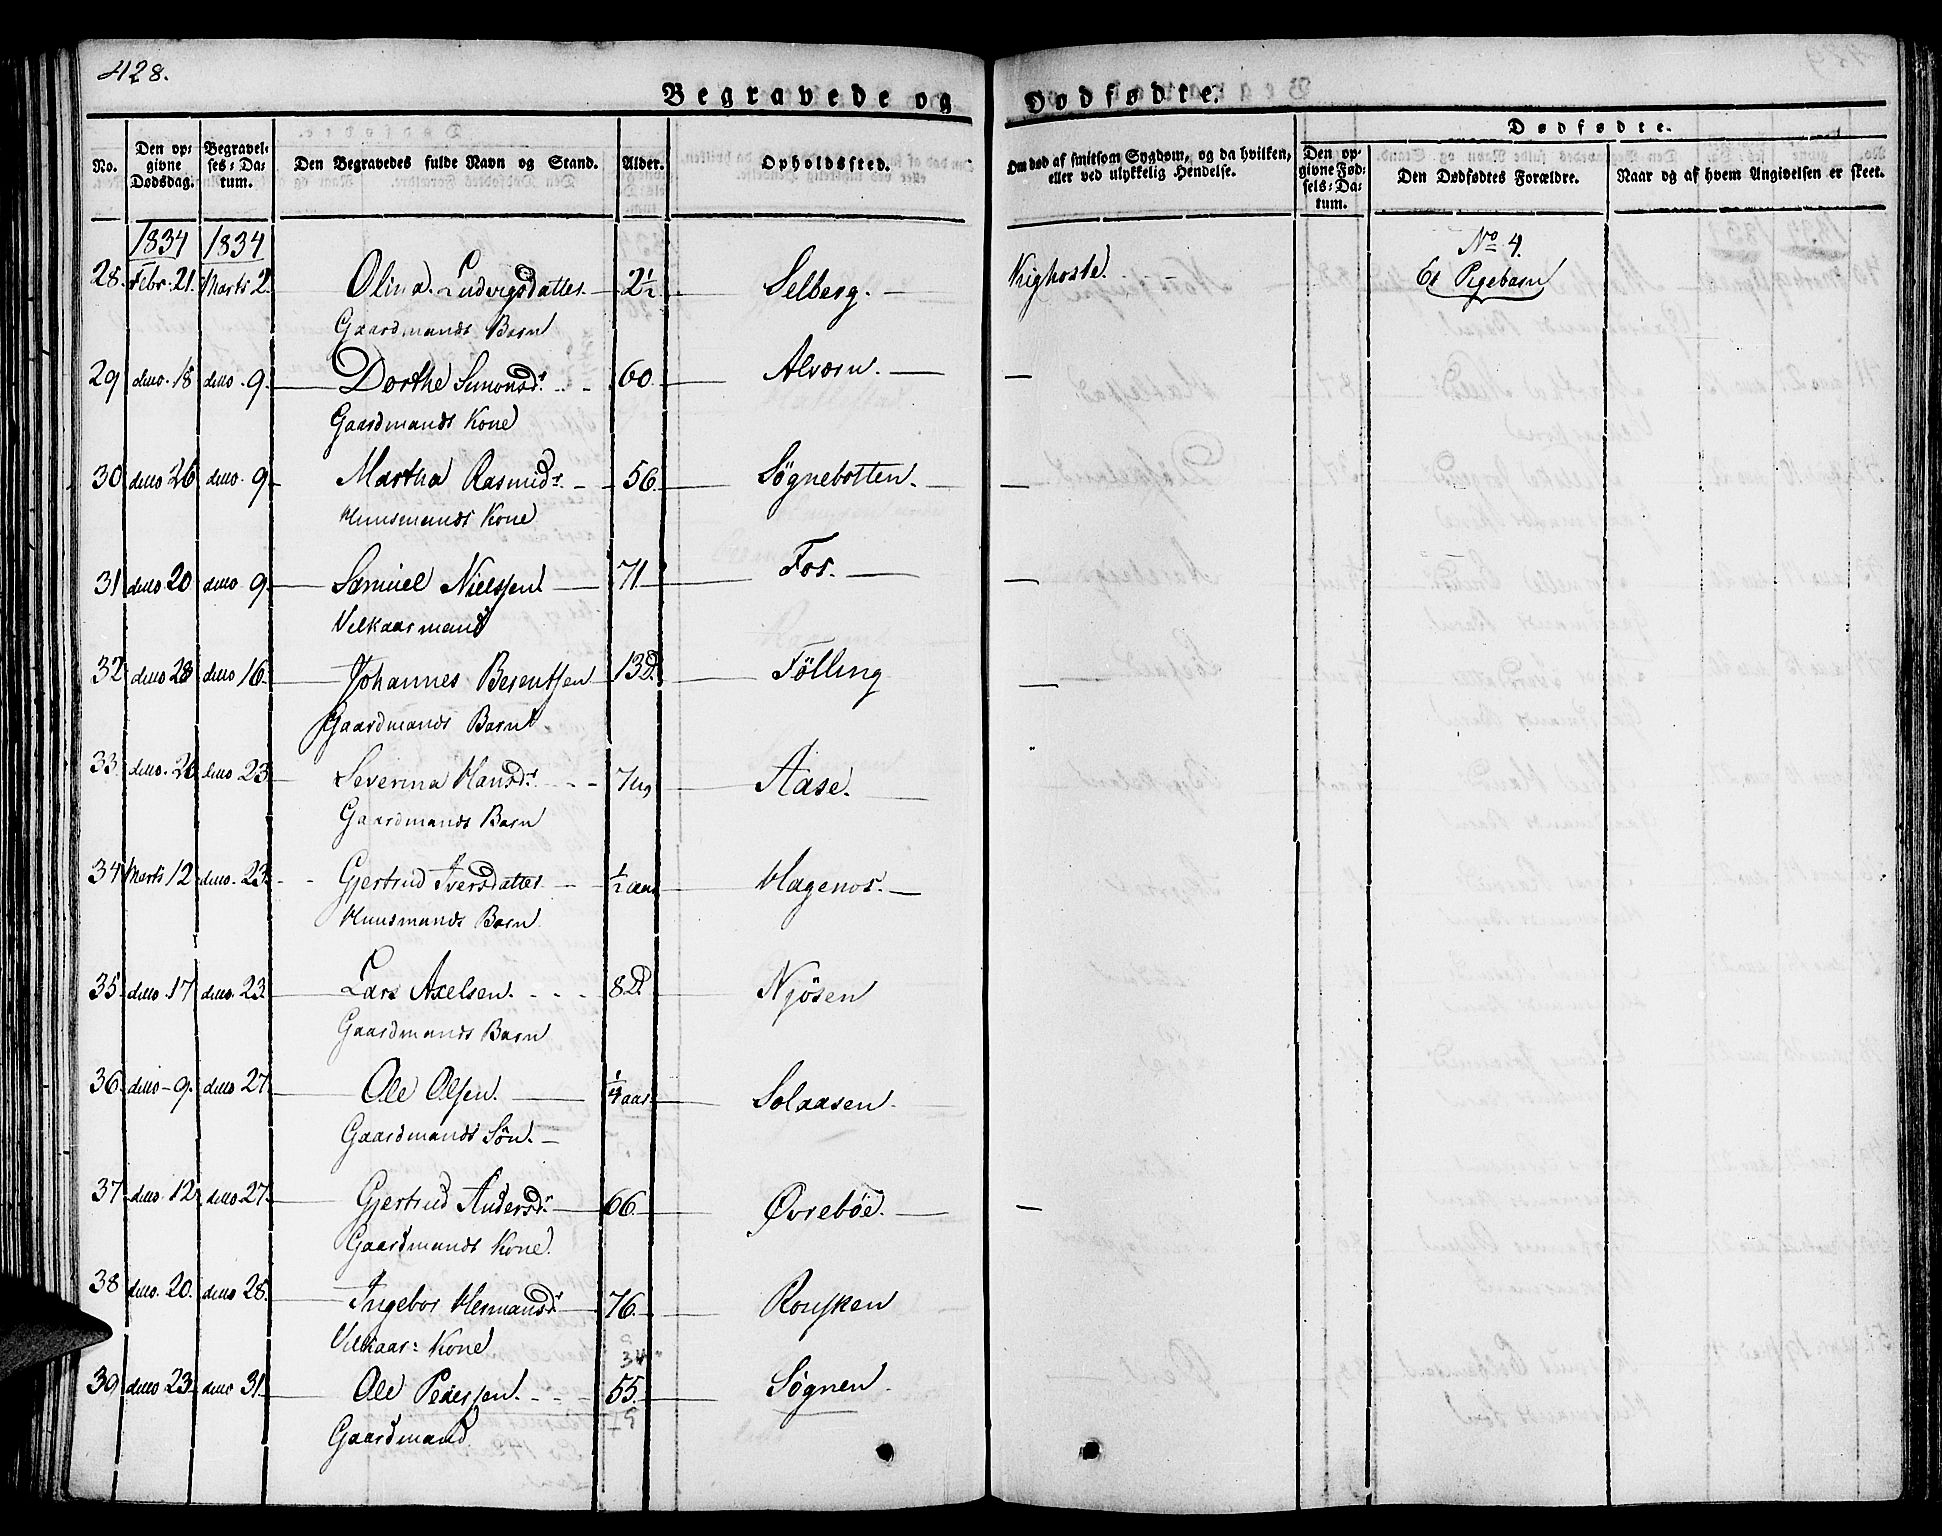 428.
Begravede og Dødfødte.
No.
Den opgivne Dødsdag.
Begravelses-Datum.
Den Begravedes fulde Navn og Stand.
Alder.
Opholdssted.
Om død af smitsom Sygdom, og da hvilken, eller ved ulykkelig Hendelse.
Dødfødte.
Den opgivne Fødsels-Datum.
Den Dødfødtes Forældre.
Naar og af hvem Angivelsen er skeet.
1834 1834
No 4.
Et Pigebarn
28. Febr. 21. Marts 2. Olina Ludvigsdatter 2½ Selberg. Kighoste.
Gaardmands Barn
29 ditto 18 ditto 9. Dorthe Simonsdr. 60. Alværn. —
Gaardmands Kone
30 ditto 26 ditto 9 Martha Rasmusdr. 56. Søgnebotten. —
Huusmands Kone
31 ditto 20 ditto 9. Samuel Nielssen 71. Fos. —
Velkaarmand
32 ditto 28 ditto 16. Johannes Berentsen 13 D. Fölling —
Gaardmands Barn
33 ditto 26 ditto 23 Severina Hansdr. 7 ug Aase.
Gaardmands Barn
34 Marts 12 ditto 23. Gjertrud Iversdatter ½ aar Hagenos.
Huusmands Barn
35 ditto 17 ditto 23. Lars Axelsen. 8 D. Njösen
Gaardmands Barn
36. ditto 9. ditto 27. Ole Olsen. ¼ aar Solaasen
Gaardmands Sön.
37 ditto 12 ditto 27. Gjertrud Andersdr. 66. Øvrebøe. —
Gaardmands Kone.
38 ditto 20. ditto 28. Ingebor Hermansdr. 76. Rousken
Vilkaar: Kone
39 ditto 23. ditto 31. Ole Pederssen. 55. Søgnen.
Gaardmand